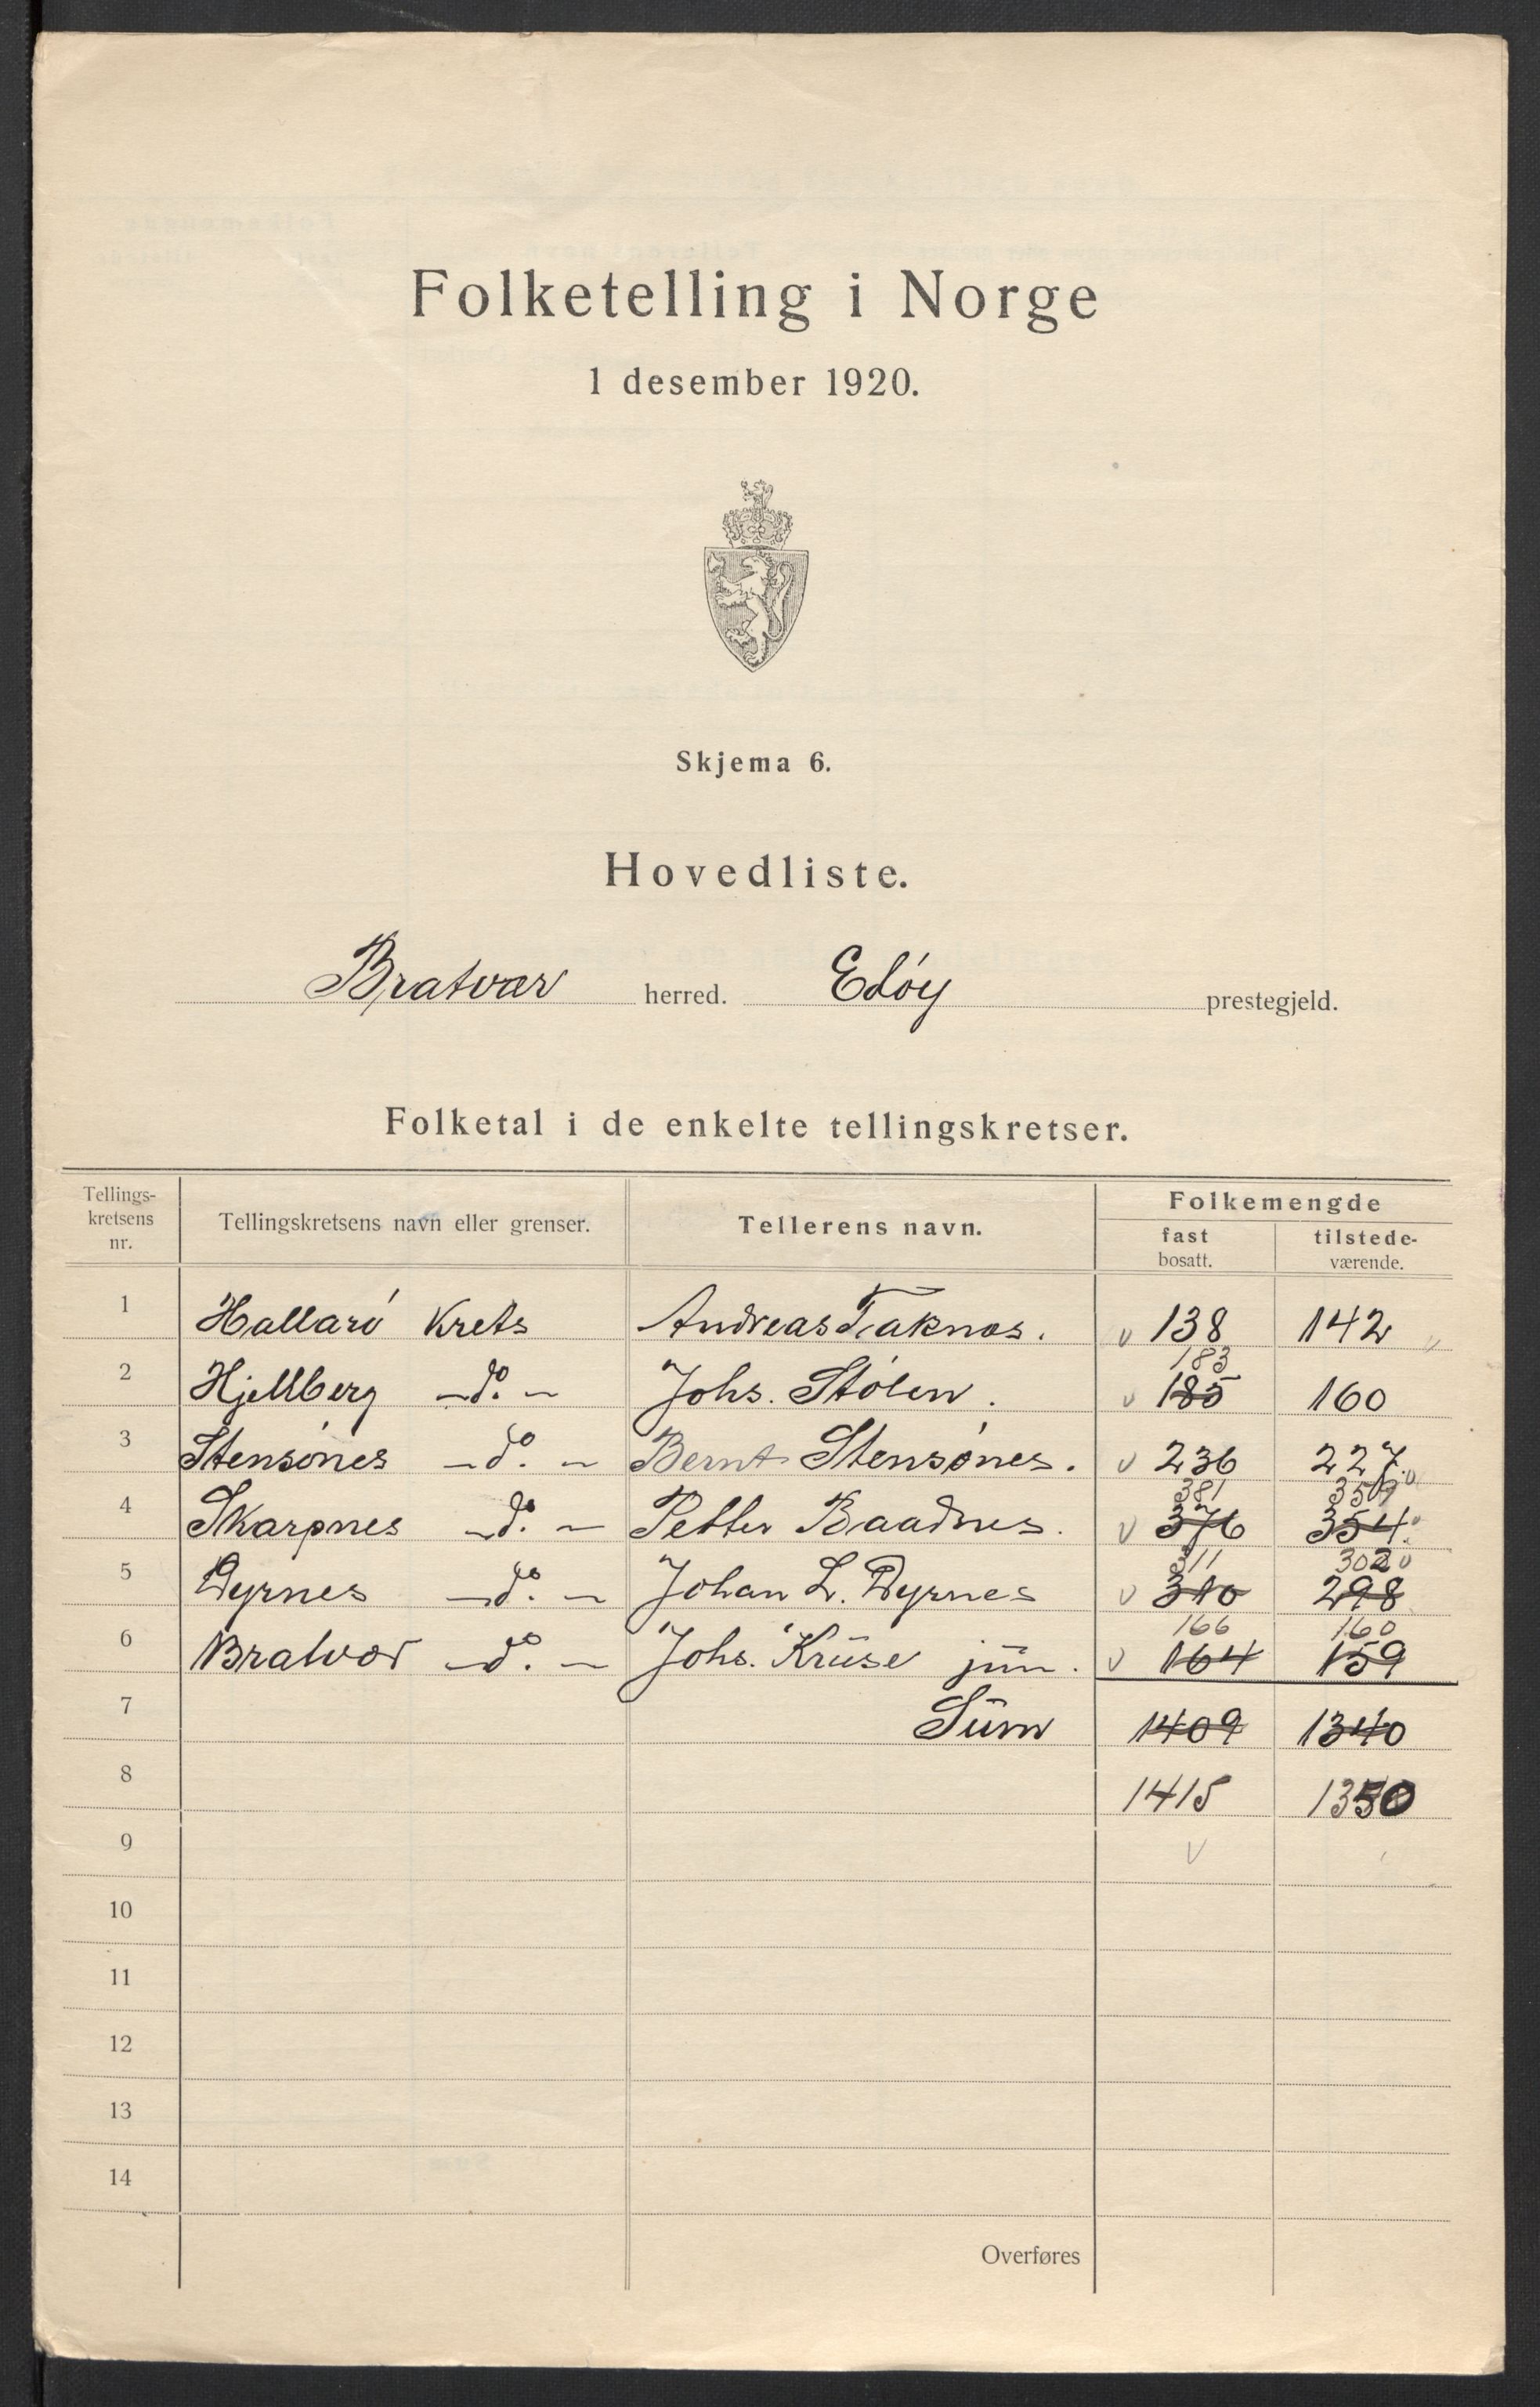 Folketelling i Norge
1 desember 1920.
Skjema 6.
Hovedliste.
Bratvær herred. Edøy prestegjeld.
Folketal i de enkelte tellingskretser.
Tellings-kretsens nr. Tellingskretsens navn eller grenser. Tellerens navn. Folkemengde
fast bosatt. tilstede-værende.
1 Hallarö Krets Andreas Taknæs. v 138 142
183
2 Hjellberg -do.- Johs. Stölen. v 185 160
3 Stensönes -do.- Bernt Stensönes. v 236 227
381
4 Skarpnes -do.- Petter Baadnes. v 376 354
311 302
5 Dyrnes -do.- Johan L. Dyrnes v 310 298
166 160
6 Bratvær -do.- Johs. Krüse jün. v 164 159
7 Süm 1409 1340
8 1415 1350
9 v
10
11
12
13
14
Overføres